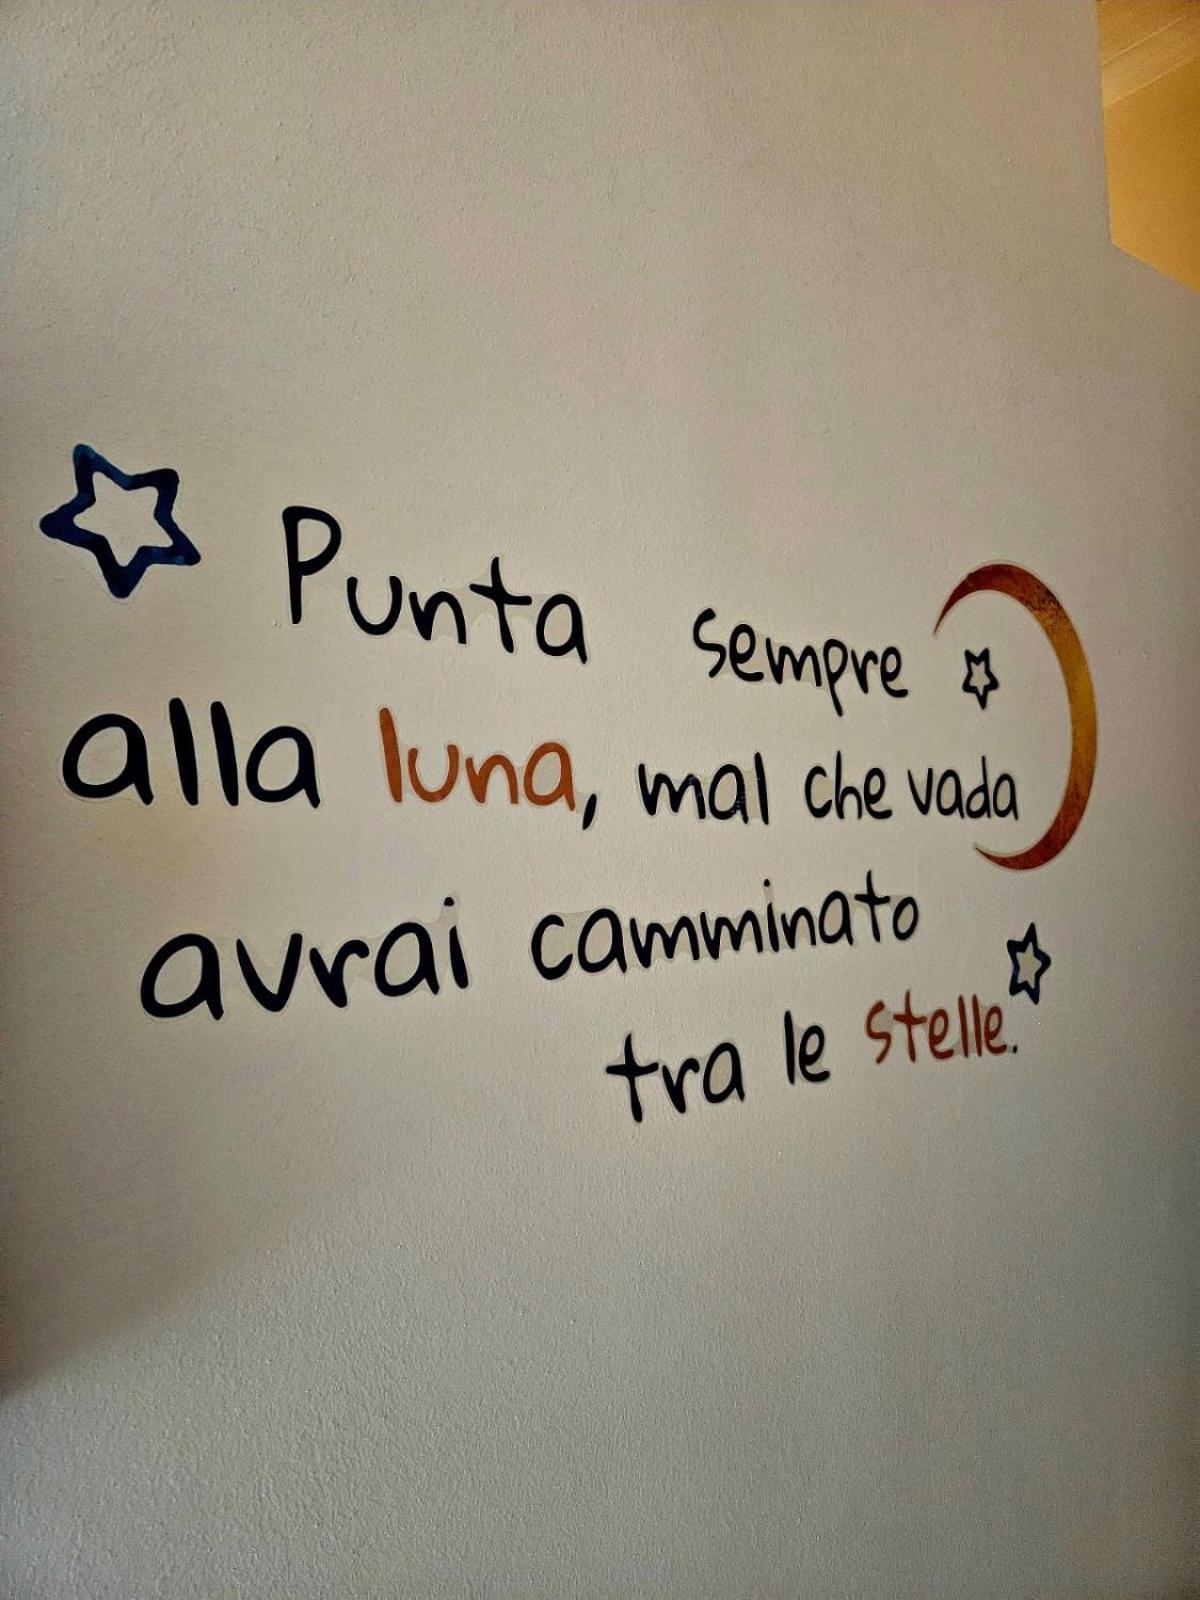 Punta sempre
alla luna, mal che vada
avrai camminato
tra le stelle.